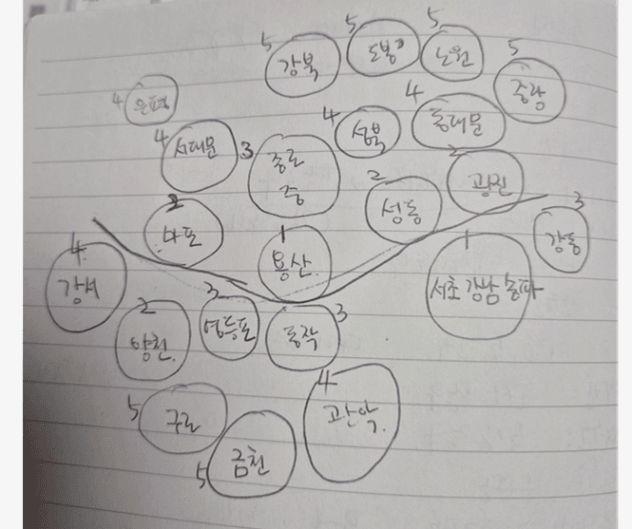 5 강북
5 도봉
5 노원
5 중랑
4 은평
4 서대문
3 종로
중
4 성북
4 동대문
2 마포
1 용산
2 성동
2 광진
3 강동
4 강서
2 양천
3 영등포
3 동작
1
서초 강남 송파
5 구로
5 금천
4
관악